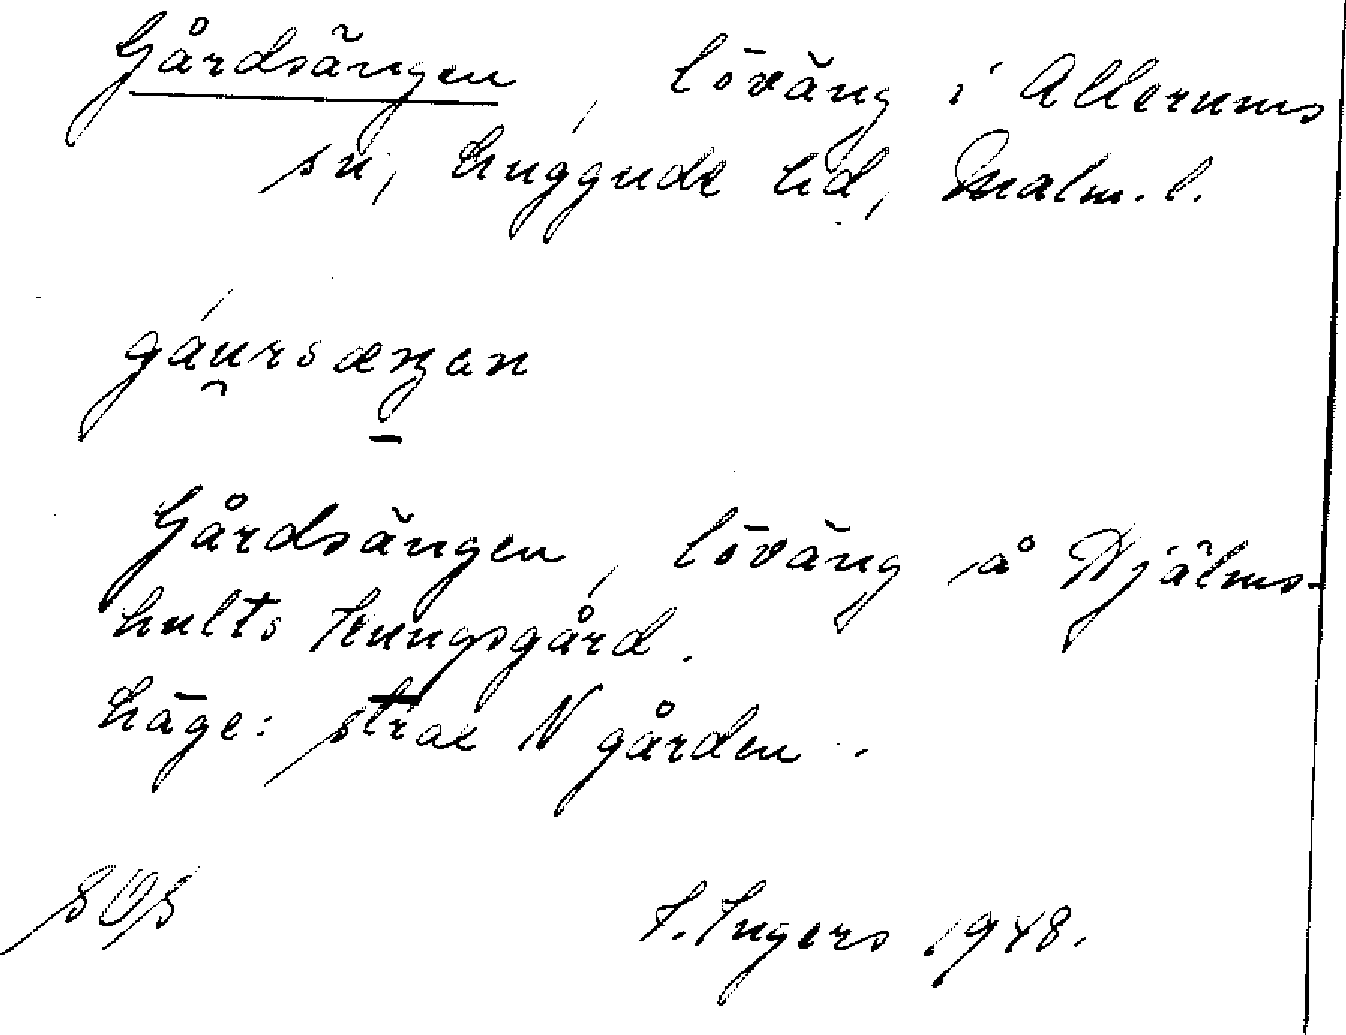 Gårdsängen, löväng i Allerums
sn, Luggude hd, Malm. l.
gáursæŋan
Gårdsängen, löväng å Hjälms-
hults kungsgård.
Läge: strax N gården.
I. Ingers 1948.